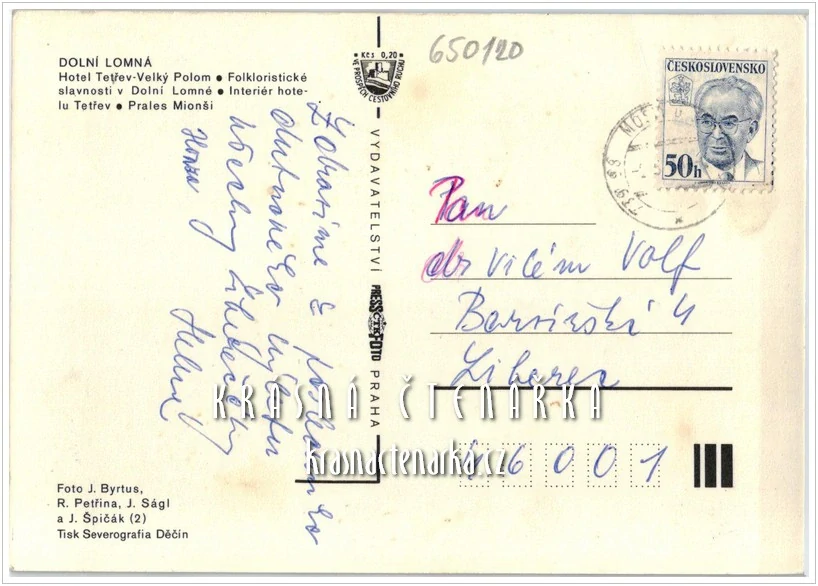 DOLNÍ LOMNÁ
Hotel Tetřev-Velký Polom ● Folkloristické
slavnosti v Dolní Lomné ● Interiér hote-
lu Tetřev ● Prales Mionší
Kčs 0,20
VE PROSPĚCH CESTOVNÍHO RUCHU
650120
ČESKOSLOVENSKO
50h
739 93
Pan
dr Vilém Volf
Barvířská 4
Liberec
46001
Zdravíme z
všechny
Honza
VYDAVATELSTVÍ PRESSFOTO PRAHA
ČTK
KRÁSNÁ ČTENÁŘKA
krasnactenarka.cz
Foto J. Byrtus,
R. Petřina, J. Ságl
a J. Špičák (2)
Tisk Severografia Děčín